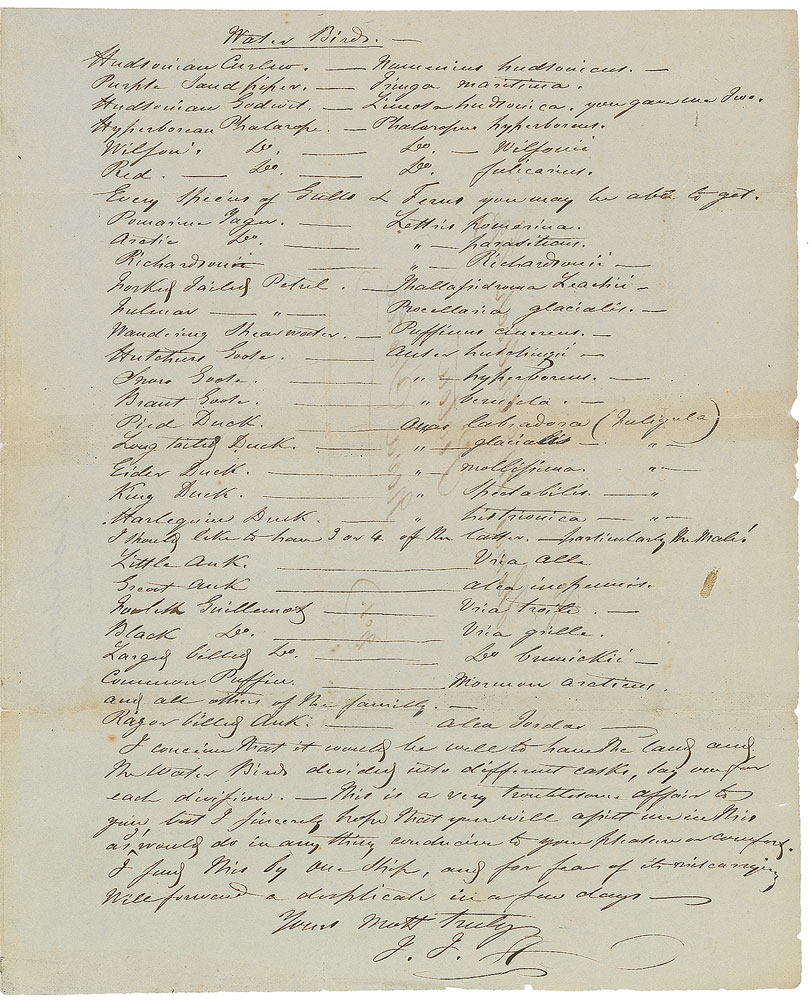 Water Birds. —
Hudsonian Curlew. — Numenius hudsonicus. —
Purple Sandpiper. — Tringa maritima.
Hudsonian Godwit. — Limosa hudsonica. you gave me Two.
Hyperborean Phalarope. — Phalaropus hyperboreus.
Wilson's Do. — Do. — Wilsonii
Red. — Do. — Do. fulicarius.
Every Species of Gulls & Terns you may be able to get.
Pomarine Jager. — Lestris pomarina.
Arctic Do. — " — parasiticus.
Richardsonii — " — Richardsonii —
Forked Tailed Petrel. — Thallasidroma Leachii —
Fulmar — " — Procellaria glacialis. —
Wandering Shearwater. — Puffinus cinereus. —
Hutchins Goose. — Anser hutchinsii —
Snow Goose. — " — hyperboreus. —
Brant Goose. — " bernicla. —
Pied Duck. — Anas labradora (Fuligula)
Long tailed Duck. — " — glacialis — " —
Eider Duck. — " — mollissima. " —
King Duck. — " Spectabilis. — "
Harlequin Duck. — " histrionica — " —
I should like to have 3 or 4 of the latter. — particularly the Males!
Little Auk. — Uria alle
Great Auk — alca impennis.
Foolish Guillemot — Uria troile. —
Black Do. — Uria grille.
Large billed Do. — Do brunickii —
Common Puffin. — Mormon arcticus.
and all others of the familly. —
Razor billed Auk. — alca Tordas —
I conceive that it would be well to have the land and
the Water Birds divided into different casks, say one for
each division. — This is a very troublesome affair to
you but I sincerely hope that you will assist me in this
as I would do in any thing conducive to your pleasure or comfort.
I send this by one ship, and for fear of its miscarrying
Will forward a duplicate in a few days —
Yours Most truly
J. J. A